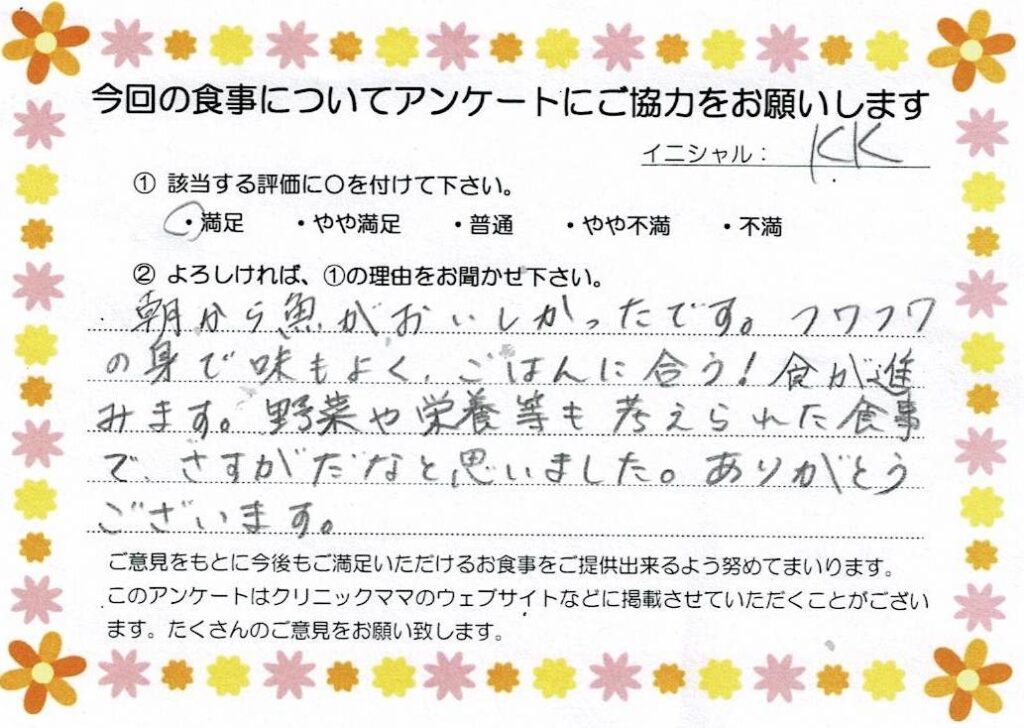 今回の食事についてアンケートにご協力をお願いします
イニシャル： K.K
① 該当する評価に○を付けて下さい。
・満足 ・やや満足 ・普通 ・やや不満 ・不満
② よろしければ、①の理由をお聞かせ下さい。
朝から魚がおいしかったです。フワフワ
の身で味もよく、ごはんに合う！食が進
みます。野菜や栄養等も考えられた食事
で、さすがだなと思いました。ありがとう
ございます。
ご意見をもとに今後もご満足いただけるお食事をご提供出来るよう努めてまいります。
このアンケートはクリニックママのウェブサイトなどに掲載させていただくことがござい
ます。たくさんのご意見をお願い致します。